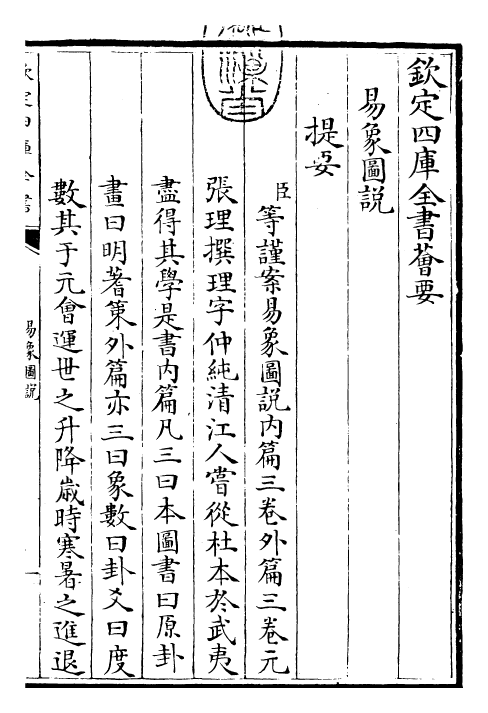 欽定四庫全書薈要
易象圖説
提要
臣等謹案易象圖説内篇三卷外篇三卷元
張理撰理字仲純清江人嘗從杜本於武夷
盡得其學是書内篇凡三曰本圖書曰原卦
畫曰明蓍策外篇亦三曰象數曰卦爻曰度
數其于元會運世之升降歲時寒暑之進退
易象圖説